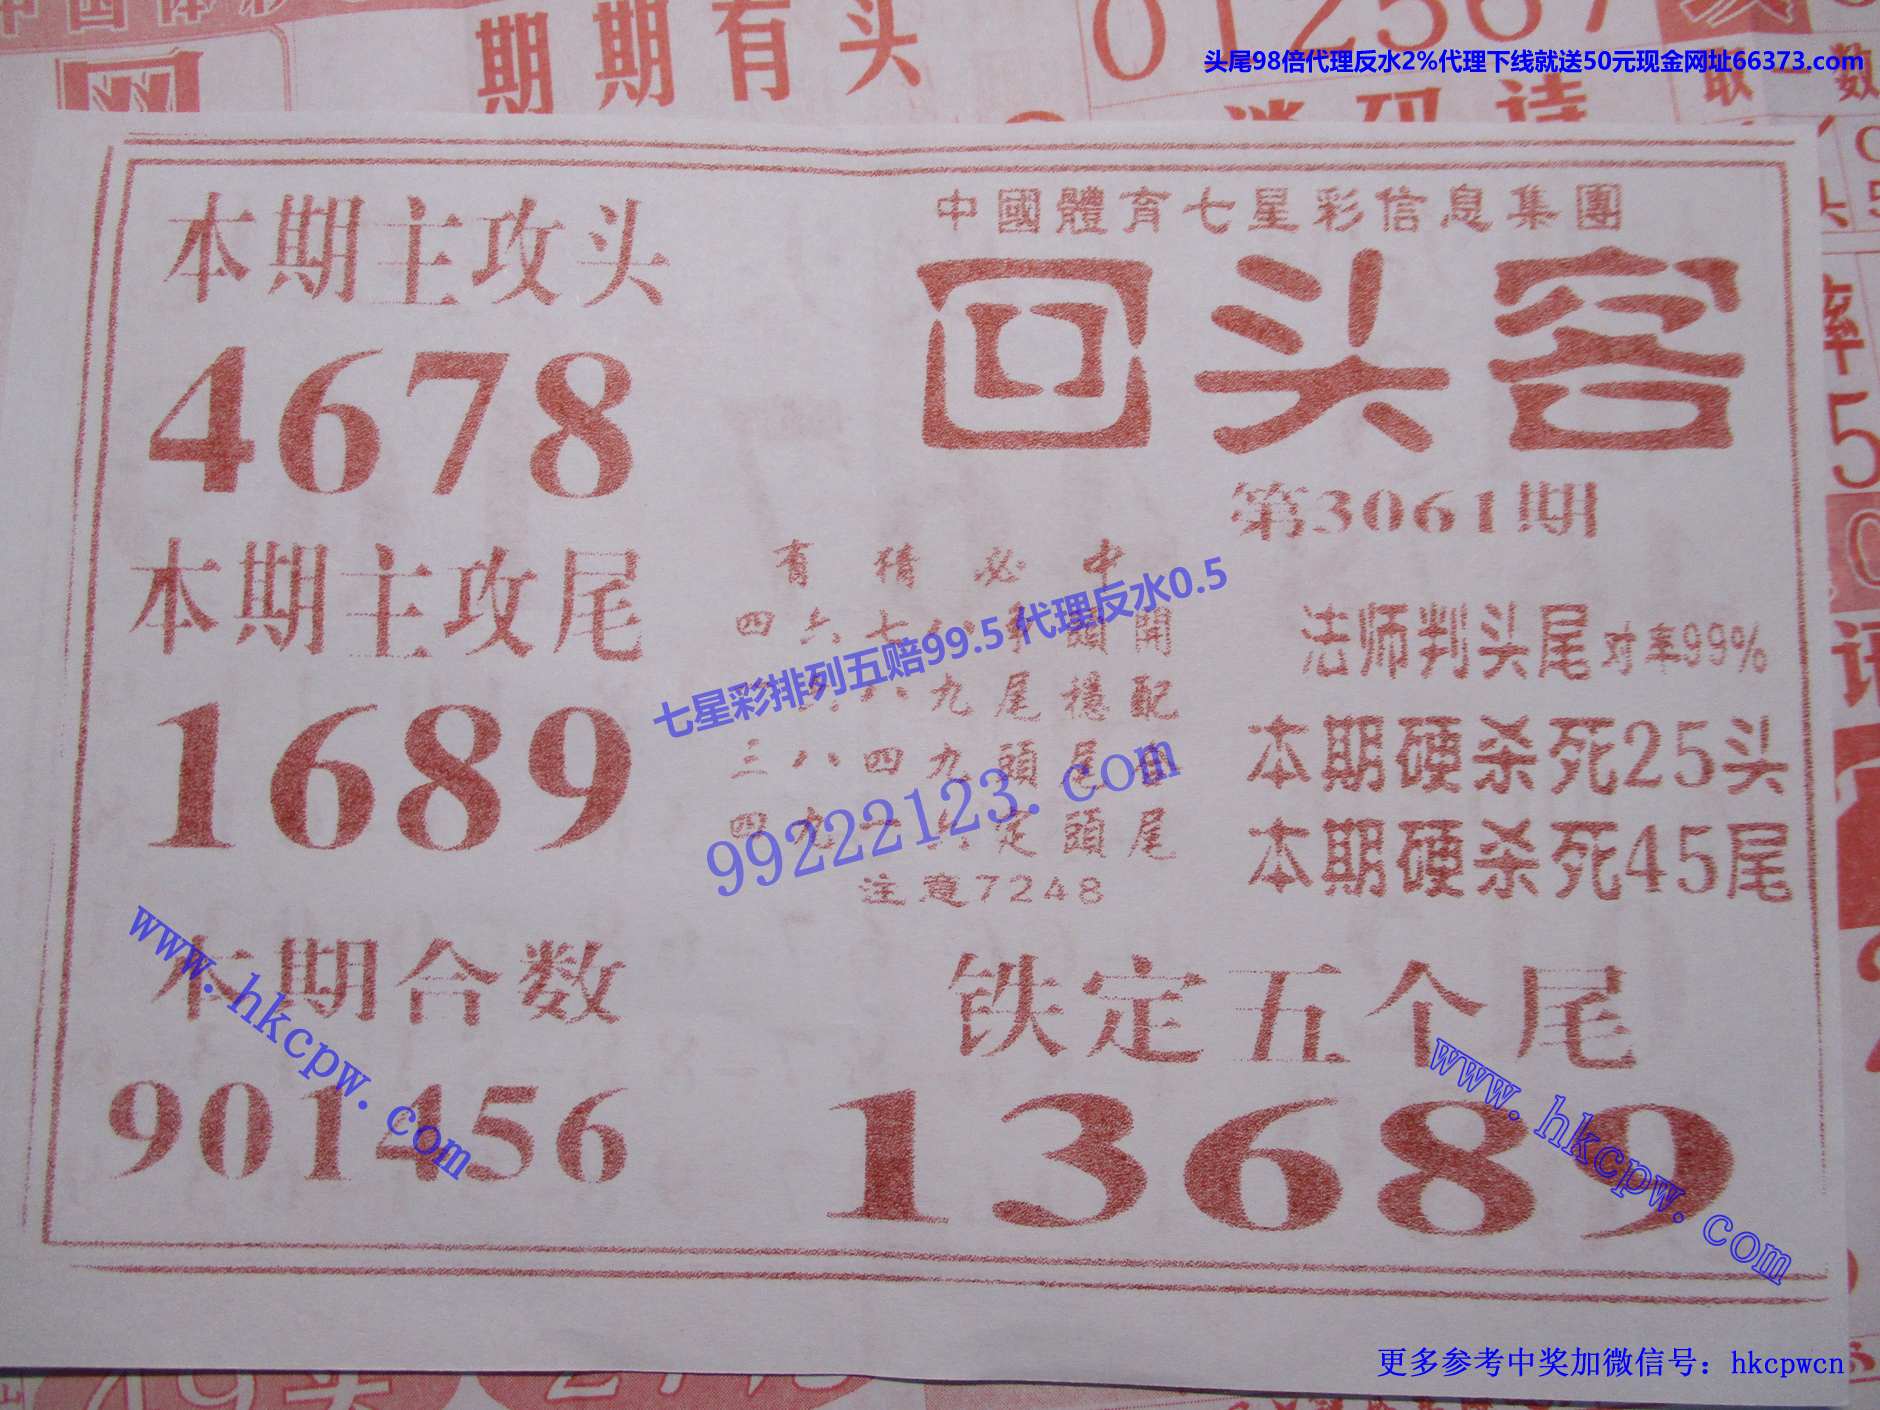 期期有头
012567
头尾98倍代理反水2%代理下线就送50元现金网址66373.com
取一数
本期主攻头
4678
本期主攻尾
1689
本期合数
901456
中國體育七星彩信息集團
回头客
第3061期
有猜必中
四六七八手頭開
六八九尾穩配
三八四九頭尾
四九一六定頭尾
注意7248
七星彩排列五赔99.5代理反水0.5
99222123.com
法师判头尾对率99%
本期硬杀死25头
本期硬杀死45尾
铁定五个尾
13689
www.hkcpw.com
www.hkcpw.com
更多参考中奖加微信号：hkcpwcn